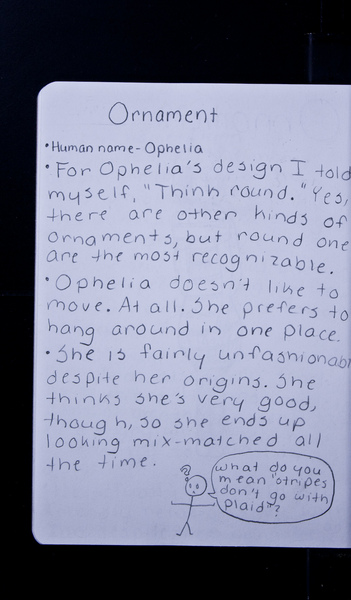 Ornament
•Human name- Ophelia
•For Ophelia's design I told
myself, "Think round." Yes,
there are other kinds of
ornaments, but round one
are the most recognizable.
•Ophelia doesn't like to
move. At all. She prefers to
hang around in one place.
•She is fairly unfashionabl
despite her origins. She
thinks she's very good,
though, so she ends up
looking mix-matched all
the time.
what do you
mean "stripes
don't go with
plaid"?